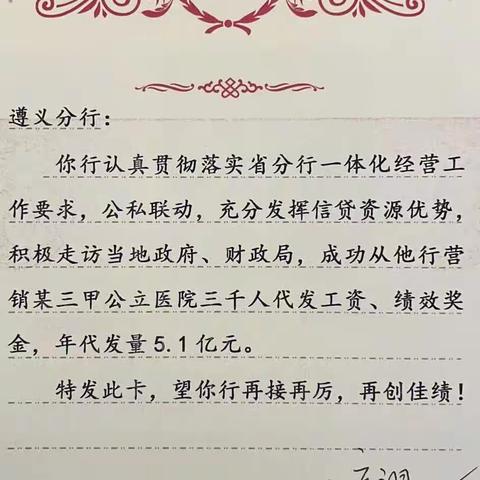 遵义分行：
你行认真贯彻落实省分行一体化经营工
作要求，公私联动，充分发挥信贷资源优势，
积极走访当地政府、财政局，成功从他行营
销某三甲公立医院三千人代发工资、绩效奖
金，年代发量5.1亿元。
特发此卡，望你行再接再厉，再创佳绩！